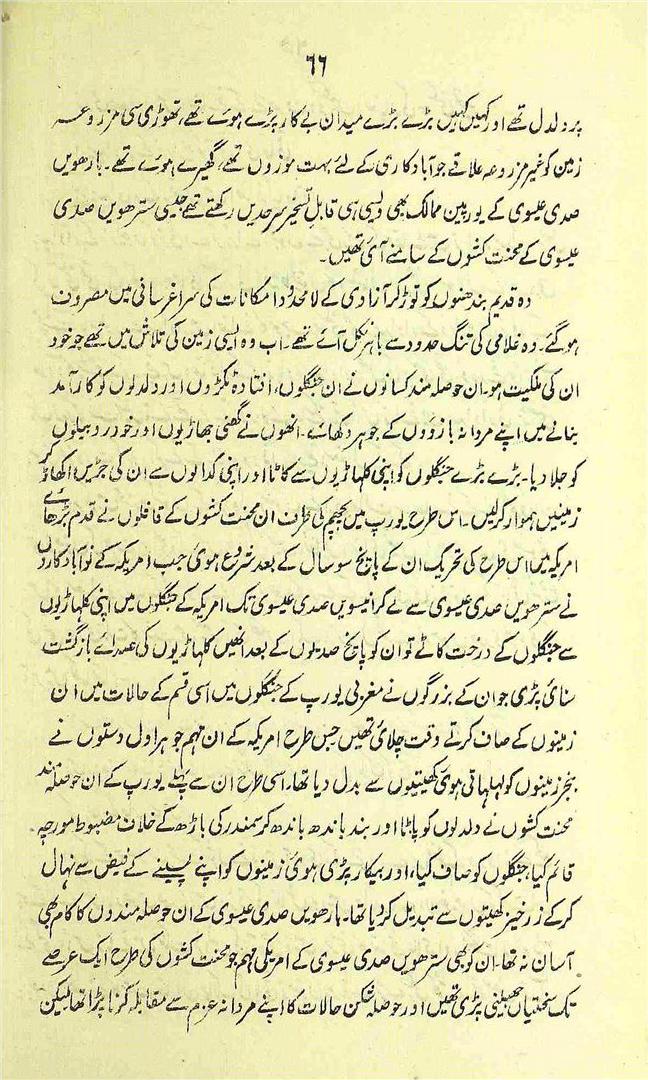 ۶۶
پر دلدل تھے اور کہیں کہیں بڑے بڑے میدان بے کار پڑے ہوئے تھے، تھوڑی سی مزروعہ
زمین کو غیر مزروعہ علاقے جو آباد کاری کے لئے بہت موزوں تھے، گھیرے ہوئے تھے۔ بارھویں
صدی عیسوی کے یورپین ممالک بھی ویسی ہی قابلِ تسخیر سرحدیں رکھتے تھے جیسی سترھویں صدی
عیسوی کے محنت کشوں کے سامنے آئی تھیں۔
وہ قدیم بندھنوں کو توڑ کر آزادی کے لامحدود امکانات کی سراغرسانی میں مصروف
ہو گئے۔ وہ غلامی کی تنگ حدود سے باہر نکل آئے تھے۔ اب وہ ایسی زمین کی تلاش میں تھے جو خود
ان کی ملکیت ہو۔ ان حوصلہ مند کسانوں نے ان جنگلوں، افتادہ ٹکڑوں اور دلدلوں کو کارآمد
بنانے میں اپنے مردانہ بازوؤں کے جوہر دکھائے۔ انھوں نے گھنی جھاڑیوں اور خودرو بیلوں
کو جلا دیا۔ بڑے بڑے جنگلوں کو اپنی کلہاڑیوں سے کاٹا اور اپنی کدالوں سے ان کی جڑیں اکھاڑ کر
زمینیں ہموار کرلیں۔ اس طرح یورپ میں پچھم کی طرف ان محنت کشوں کے قافلوں نے قدم بڑھائے
امریکہ میں اس طرح کی تحریک ان کے پانچ سو سال کے بعد شروع ہوئی جب امریکہ کے نوآبادکاروں
نے سترھویں صدی عیسوی سے لے کر انیسویں صدی عیسوی تک امریکہ کے جنگلوں میں اپنی کلہاڑیوں
سے جنگلوں کے درخت کاٹے تو ان کو پانچ صدیوں کے بعد انھیں کلہاڑیوں کی صدائے بازگشت
سنائی پڑی جو ان کے بزرگوں نے مغربی یورپ کے جنگلوں میں اسی قسم کے حالات میں ان
زمینوں کے صاف کرتے وقت چلائی تھیں جس طرح امریکہ کے ان مہم جو ہراول دستوں نے
بنجر زمینوں کو لہلہاتی ہوئی کھیتیوں سے بدل دیا تھا۔ اسی طرح ان سے پہلے یورپ کے ان حوصلہ مند
محنت کشوں نے دلدلوں کو پاٹا اور بند باندھ باندھ کر سمندر کی باڑھ کے خلاف مضبوط مورچہ
قائم کیا، جنگلوں کو صاف کیا، اور بیکار پڑی ہوئی زمینوں کو اپنے پسینے کے فیض سے نہال
کر کے زرخیز کھیتوں سے تبدیل کر دیا تھا۔ بارھویں صدی عیسوی کے ان حوصلہ مندوں کا کام بھی
آسان نہ تھا۔ ان کو بھی سترھویں صدی عیسوی کے امریکی مہم جو محنت کشوں کی طرح ایک عرصے
تک سختیاں جھیلنی پڑی تھیں اور حوصلہ شکن حالات کا اپنے مردانہ عزم سے مقابلہ کرنا پڑا تھا لیکن